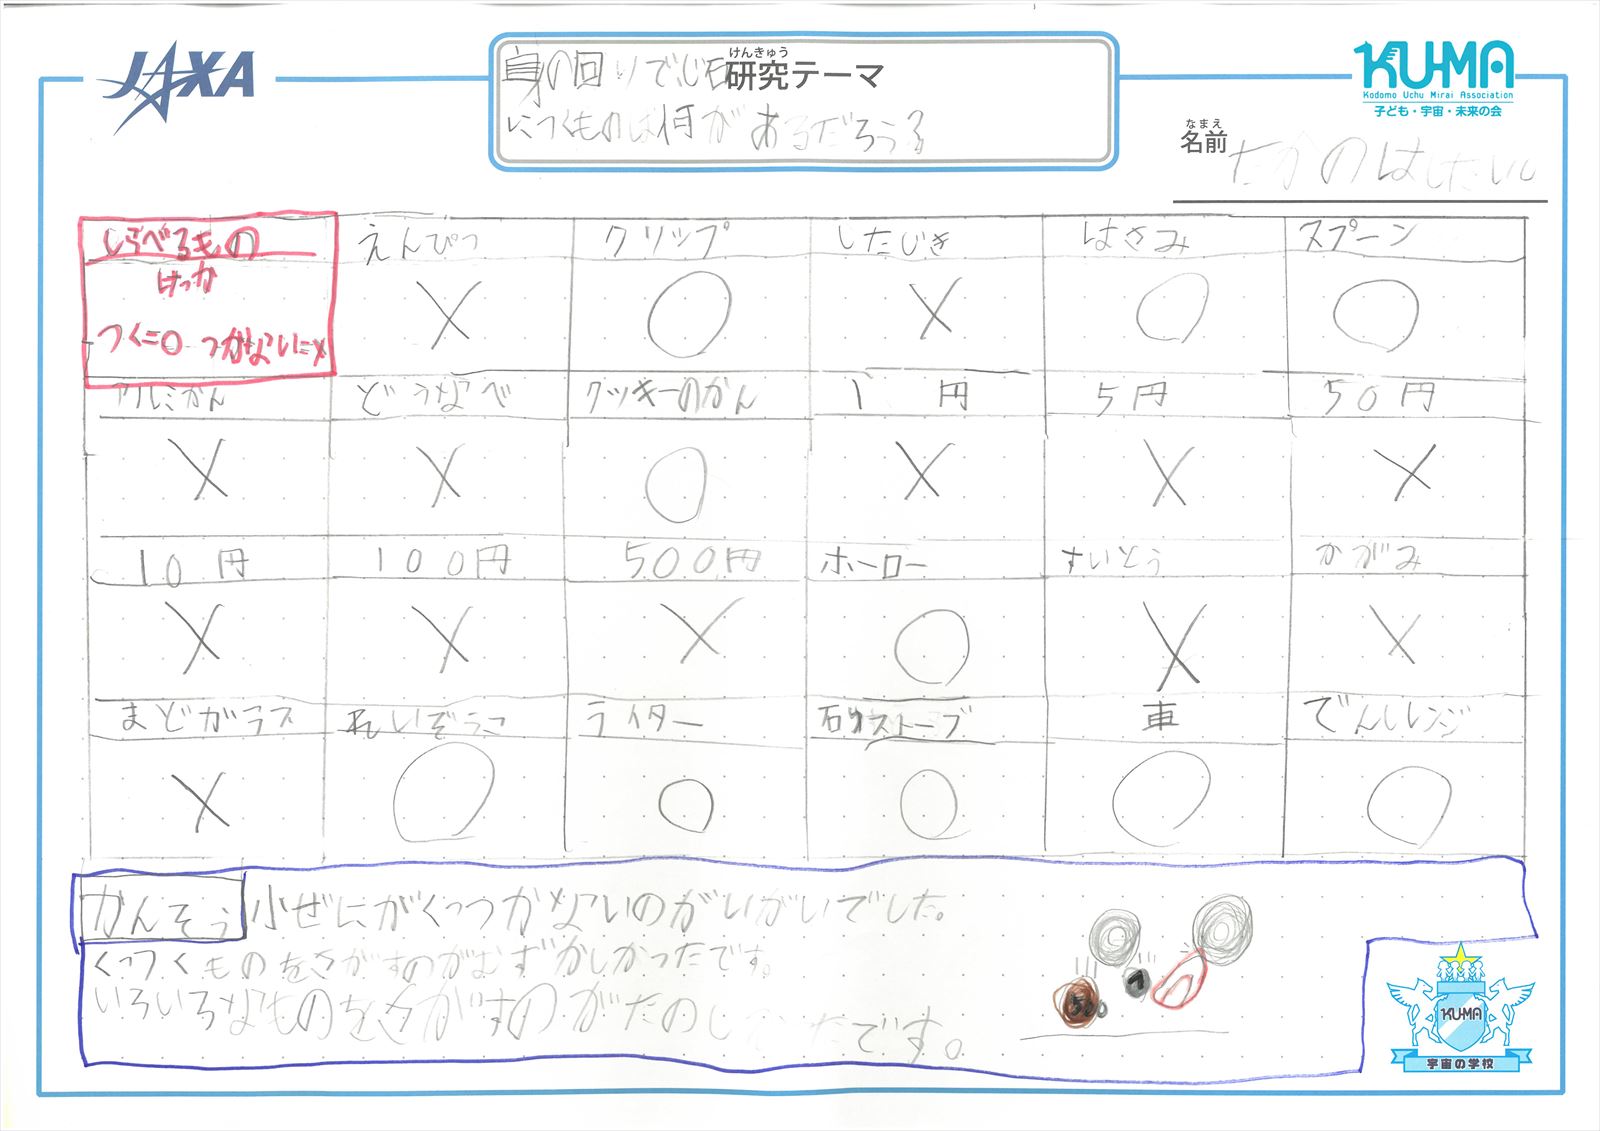 JAXA
けんきゅう
研究テーマ
身の回りで磁石
につくものは何があるだろう
KU-MA
Kodomo Uchu Mirai Association
子ども・宇宙・未来の会
なまえ
名前
たかのはしたいし
しらべるもの
けっか
つく=○ つかない=×
えんぴつ
クリップ
したじき
はさみ
スプーン
× ○ × ○ ○
アルミかん
どうなべ
クッキーのかん
1円
5円
50円
× × ○ × × ×
10円
100円
500円
ホーロー
すいとう
かがみ
× × × ○ × ×
まどガラス
れいぞうこ
ライター
石ゆストーブ
車
でんしレンジ
× ○ ○ ○ ○ ○
かんそう 小ぜにがくっつかないのがいがいでした。
くっつくものをさがすのがむずかしかったです。
いろいろなものをさがすのがたのしかったです。
500
1
KU-MA
宇宙の学校